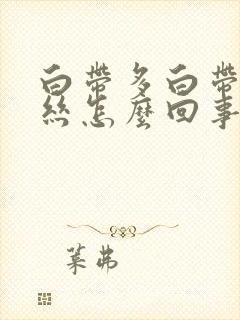 白帶多白帶
絲怎麼回事
葉弗